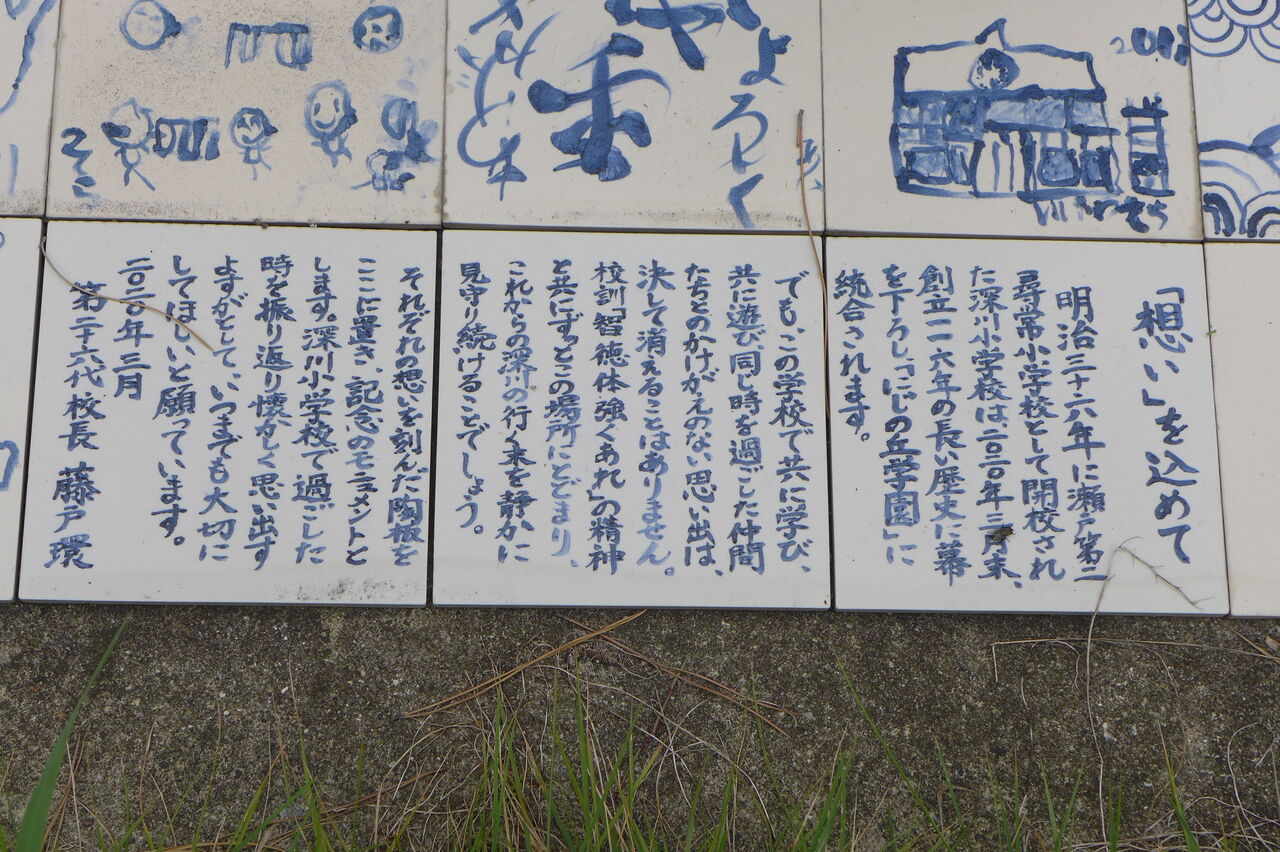 よろしく
「想い」を込めて
明治三十六年に瀬戸第二
尋常小学校として開校され
た深川小学校は二〇二〇年三月末、
創立一一六年の長い歴史に幕
を下ろし、「にじの丘学園」に
統合されます。
でも、この学校で共に学び、
共に遊び同じ時を過ごした仲間
たちとのかけがえのない思い出は、
決して消えることはありません。
校訓「智徳体強くあれ」の精神
と共にずっとこの場所にとどまり、
これからの深川の行く末を静かに
見守り続けることでしょう。
それぞれの想いを刻んだ陶板を
ここに置き、記念のモニュメントと
します。深川小学校で過ごした
時を振り返り懐かしく思い出す
よすがとして、いつまでも大切に
してほしいと願っています。
二〇二〇年三月
第二十六代校長 藤戸環